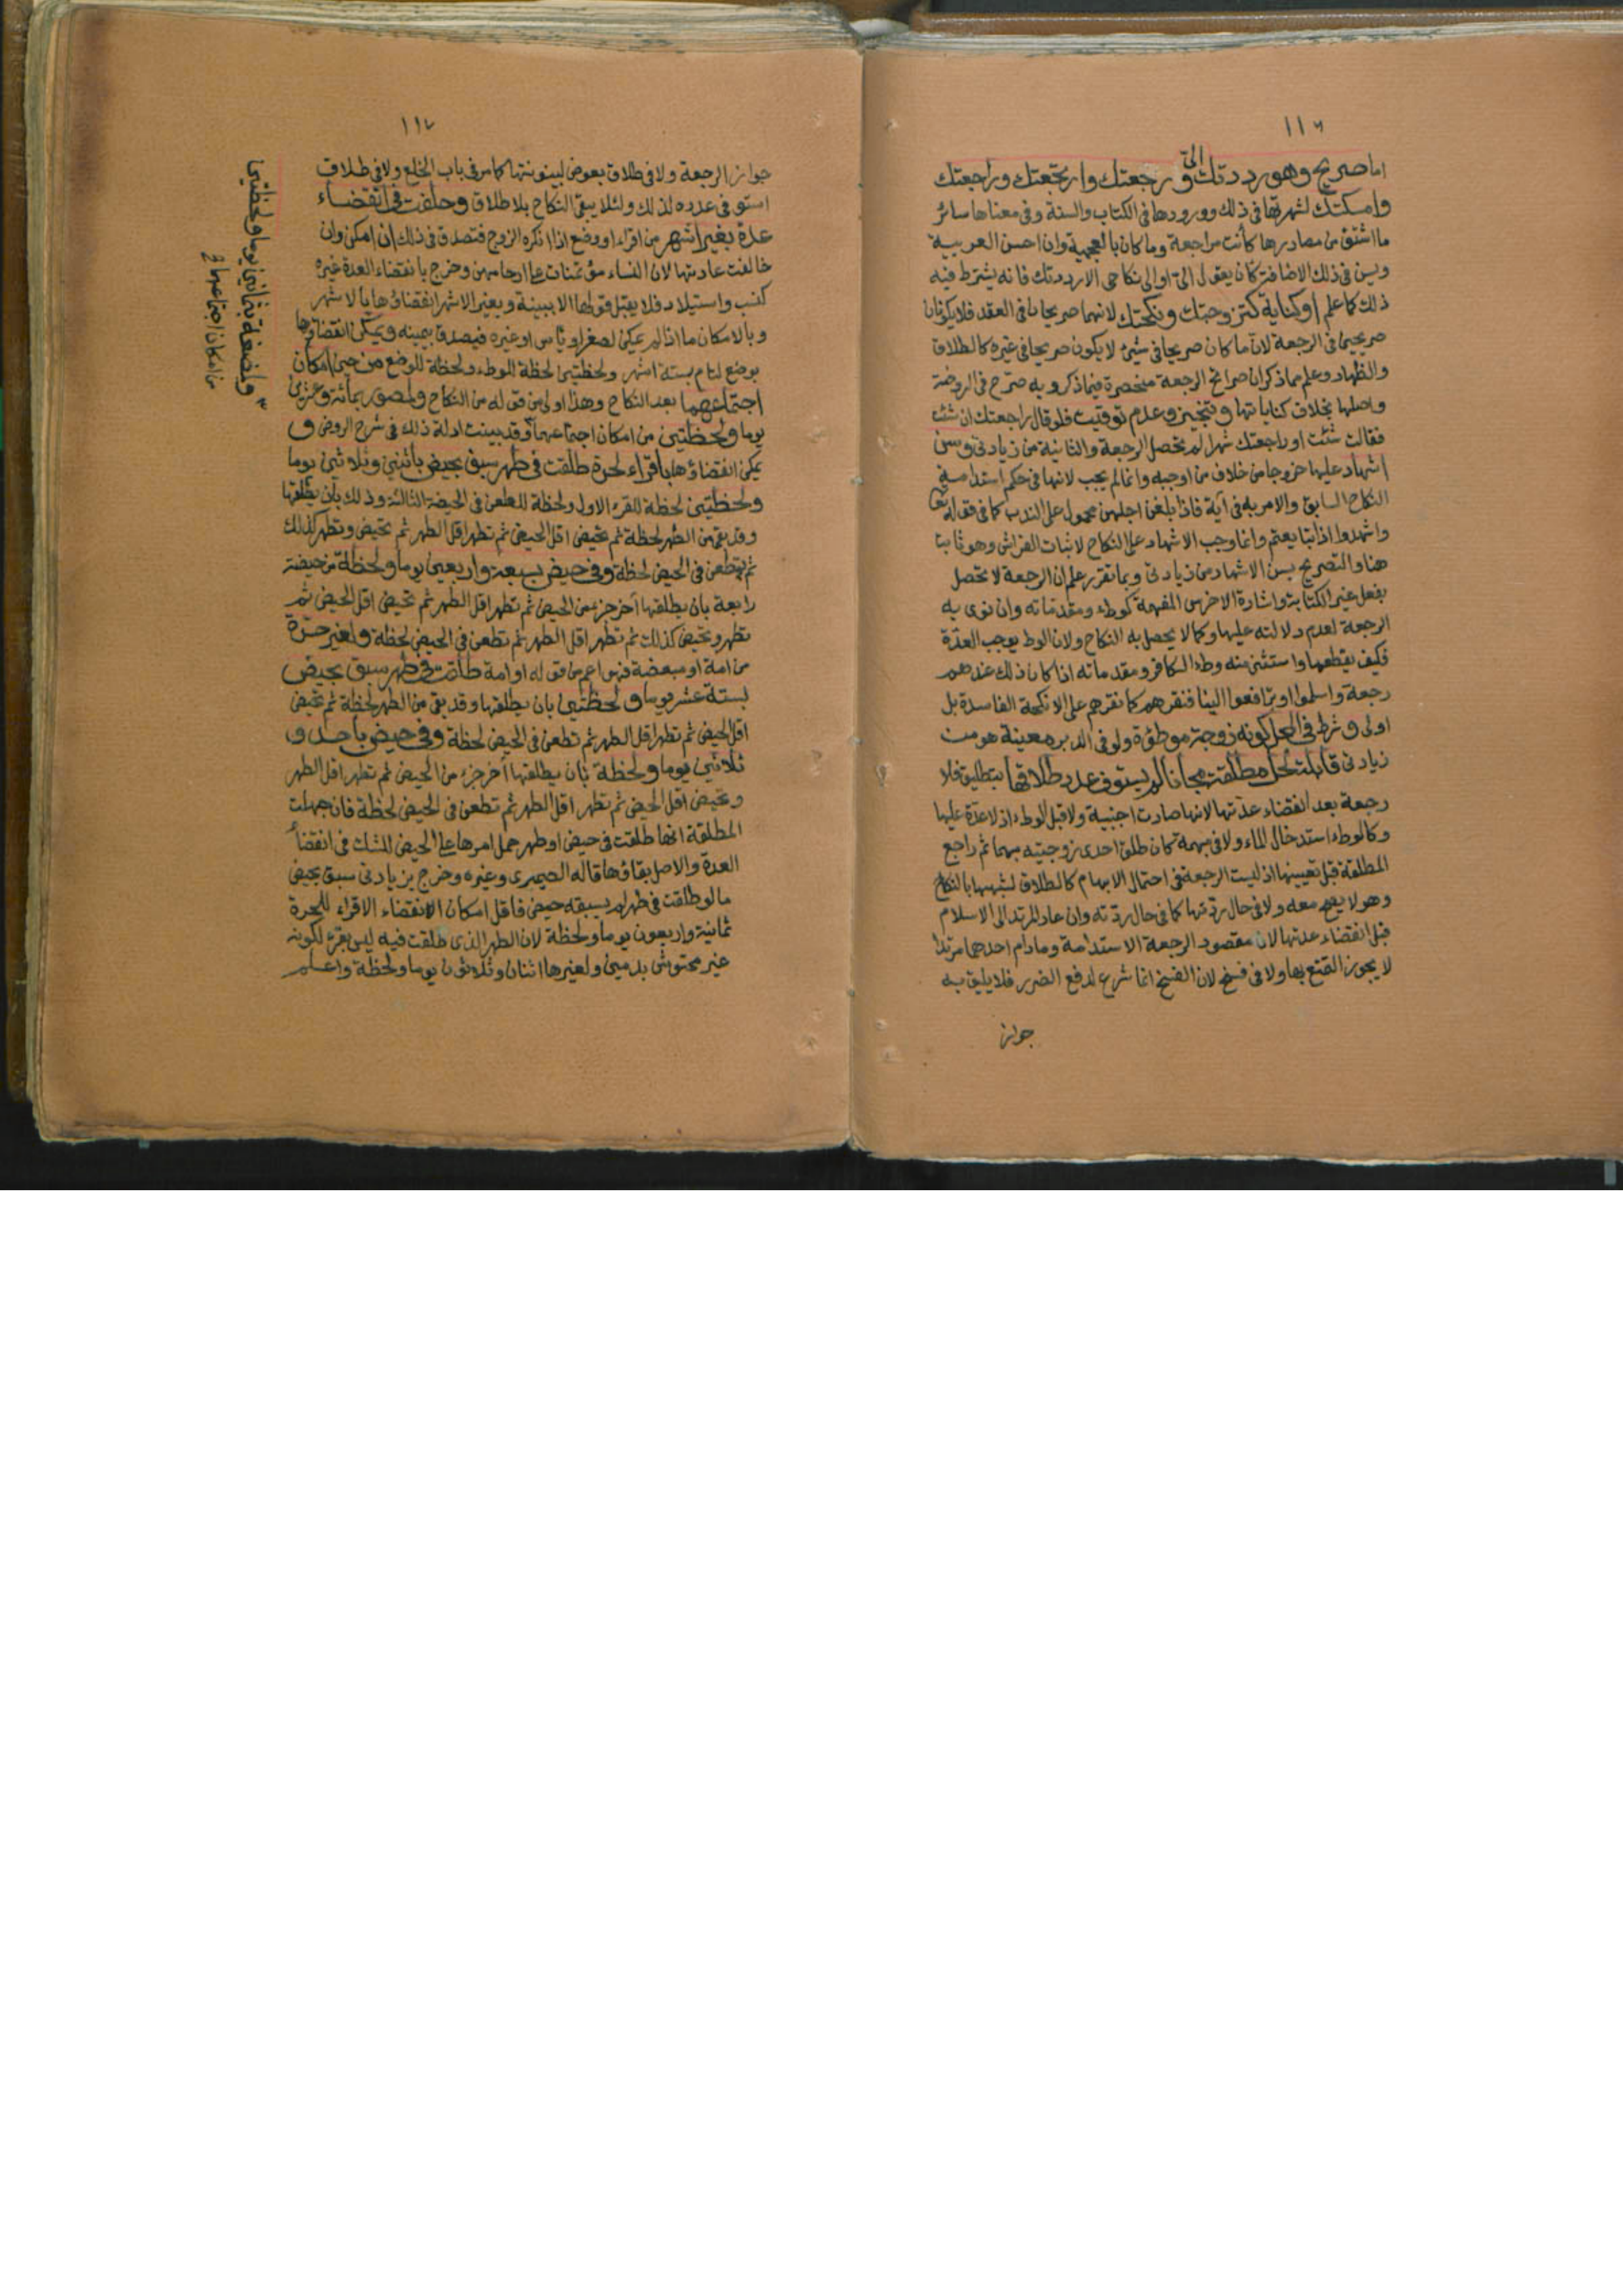 ١١٦
اما صريح وهو رددتك الىّ و رجعتك وارتجعتك وراجعتك
وامسكتك لشهرتها فى ذلك وورودها فى الكتاب والسنة وفى معناها سائر
ما اشتق من مصادرها كأنت مراجعة وما كان بالعجمية وان احسن العربية
ويسن فى ذلك الاضافة كان يقول الىّ او الى نكاحى الا رددتك فانه يشترط فيه
ذلك كما علم او كناية كتزوجتك ونكحتك لانهما صريحان فى العقد فلا يكونان
صريحين فى الرجعة لان ما كان صريحا فى شئ لا يكون صريحا فى غيره كالطلاق
والظهار وعلم مما ذكر ان صرائح الرجعة منحصرة فيما ذكر وبه صرح فى الروضة
واصلها بخلاف كناياتها وتنجيز وعدم توقيت فلو قال راجعتك ان شئت
فقالت شئت او راجعتك شهرا لم تحصل الرجعة والثانية من زيادتى وسن
اشهاد عليها خروجا من خلاف من اوجبه وانما لم يجب لانها فى حكم استدامة
النكاح السابق والامر به فى آية فاذا بلغن اجلهن محمول على الندب كما فى قوله تعا
واشهدوا اذا تبايعتم وانما وجب الاشهاد على النكاح لاثبات الفراش وهو ثابت
هنا والتصريح بسن الاشهاد من زيادتى وبما تقرر علم ان الرجعة لا تحصل
بفعل غير الكتابة واشارة الاخرس المفهمة كوطء ومقدماته وان نوى به
الرجعة لعدم دلالته عليها وكما لا يحصل به النكاح ولان الوطء يوجب العدة
فكيف يقطعها واستثنى منه وطء الكافر ومقدماته اذا كان ذلك عندهم
رجعة واسلموا او ترافعوا الينا فنقرهم كما نقرهم على الانكحة الفاسدة بل
اولى و شرط فى المحل كونه زوجة موطؤة ولو فى الدبر معينة هو من
زيادتى قابلة لحل مطلقة مجانا لم يستوف عدد طلاقها بتطليق فلا
رجعة بعد انقضاء عدتها لانها صارت اجنبية ولا قبل الوطء اذ لا عدة عليها
وكالوطء استدخال الماء ولا فى مبهمة كان طلق احدى زوجتيه مبهما ثم راجع
المطلقة قبل تعيينها اذ ليست الرجعة فى احتمال الابهام كالطلاق لشبهها بالنكاح
وهو لا يصح معه ولا فى حال ردتها كما فى حال ردته وان عاد المرتد الى الاسلام
قبل انقضاء عدتها لان مقصود الرجعة الاستدامة وما دام احدهما مرتدا
لا يجوز التمتع بها ولا فى فسخ لان الفسخ انما شرع لدفع الضرر فلا يليق به
جواز
١١٧
جواز الرجعة ولا فى طلاق بعوض لبينونتها كما مر فى باب الخلع ولا فى طلاق
استوفى عدده لذلك ولئلا يبقى النكاح بلا طلاق وحلفت فى انقضاء
عدة بغير اشهر من اقراء او وضع اذا انكره الزوج فتصدق فى ذلك ان امكن وان
خالفت عادتها لان النساء مؤتمنات على ارحامهن وخرج بانقضاء العدة غيره
كنسب واستيلاد فلا يقبل قولها الا ببينة وبغير الاشهر انقضاؤها بالاشهر
وبالامكان ما اذا لم يمكن لصغر او ياس او غيره فيصدق بيمينه ويمكن انقضاؤها
بوضع لتام بستة اشهر ولحظتين لحظة للوطء ولحظة للوضع من حين امكان
اجتماعهما بعد النكاح وهذا اولى من قوله من النكاح ولمصور بمائة وعشرين
يوما ولحظتين من امكان اجتماعهما وقد بينت ادلة ذلك فى شرح الروض و
يمكن انقضاؤها باقراء لحرة طلقت فى طهر سبق بحيض باثنين وثلاثين يوما
ولحظتين لحظة للقرء الاول ولحظة للطعن فى الحيضة الثالثة وذلك بان يطلقها
وقد بقى من الطهر لحظة ثم تحيض اقل الحيض ثم تطهر اقل الطهر ثم تحيض وتطهر كذلك
ثم تطعن فى الحيض لحظة وفى حيض بسبعة واربعين يوما ولحظة من حيضة
رابعة بان يطلقها آخر جزء من الحيض ثم تطهر اقل الطهر ثم تحيض اقل الحيض ثم
تطهر وتحيض كذلك ثم تطهر اقل الطهر ثم تطعن فى الحيض لحظة ولغير حرة
من امة او مبعضة فهو اعم من قوله او امة طلقت فى طهر سبق بحيض
بستة عشر يوما ولحظتين بان يطلقها وقد بقى من الطهر لحظة ثم تحيض
اقل الحيض ثم تطهر اقل الطهر ثم تطعن فى الحيض لحظة وفى حيض باحد و
ثلاثين يوما ولحظة بان يطلقها آخر جزء من الحيض ثم تطهر اقل الطهر
وتحيض اقل الحيض ثم تطهر اقل الطهر ثم تطعن فى الحيض لحظة فان جهلت
المطلقة انها طلقت فى حيض او طهر حمل امرها على الحيض للشك فى انقضاء
العدة والاصل بقاؤها قاله الصيمرى وغيره وخرج بزيادتى سبق بحيض
ما لو طلقت فى طهر لم يسبقه حيض فاقل امكان الانقضاء الاقراء للحرة
ثمانية واربعون يوما ولحظة لان الطهر الذى طلقت فيه ليس بقرء لكونه
غير محتوش بدمين ولغيرها اثنان وثلاثون يوما ولحظة واعلم
ولمضغة بثمانين يوما ولحظتين
من امكان اجتماعهما